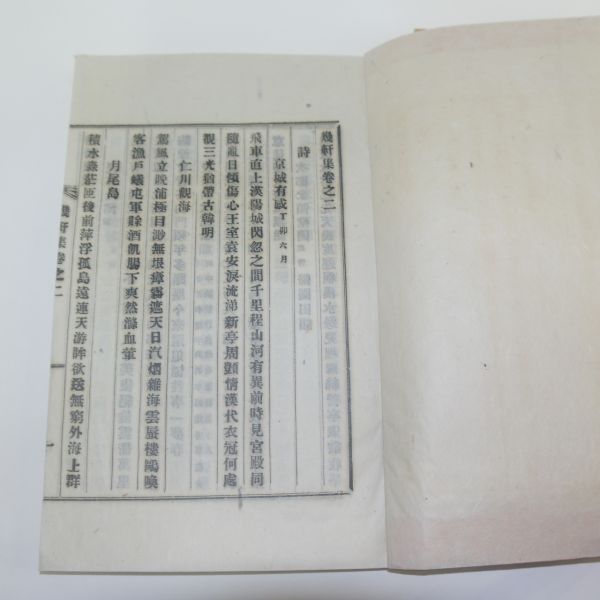 幾軒集卷之二
詩
京城有感 丁卯六月
飛車直上漢陽城閃忽之間千里程山河有異前時見宮殿同
隨亂日傾傷心王室袁安淚流涕新亭周顗情漢代衣冠何處
觀三光猶帶古韓明
仁川觀海
駕風立晩浦極目渺無垠瘴霧遮天日汽烟雜海雲蜃樓鷗喚
客漁戶蟻屯軍賖酒飢腸下爽然滌血葷
月尾島
積水森茫匝後前萍浮孤島遠連天游眸欲送無窮外海上群
幾軒集卷之二
一